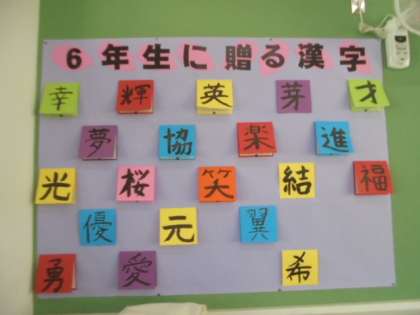 6年生に贈る漢字
幸 輝 英 芽 才
夢 協 楽 進
光 桜 笑 結 福
優 元 翼
勇 愛 希